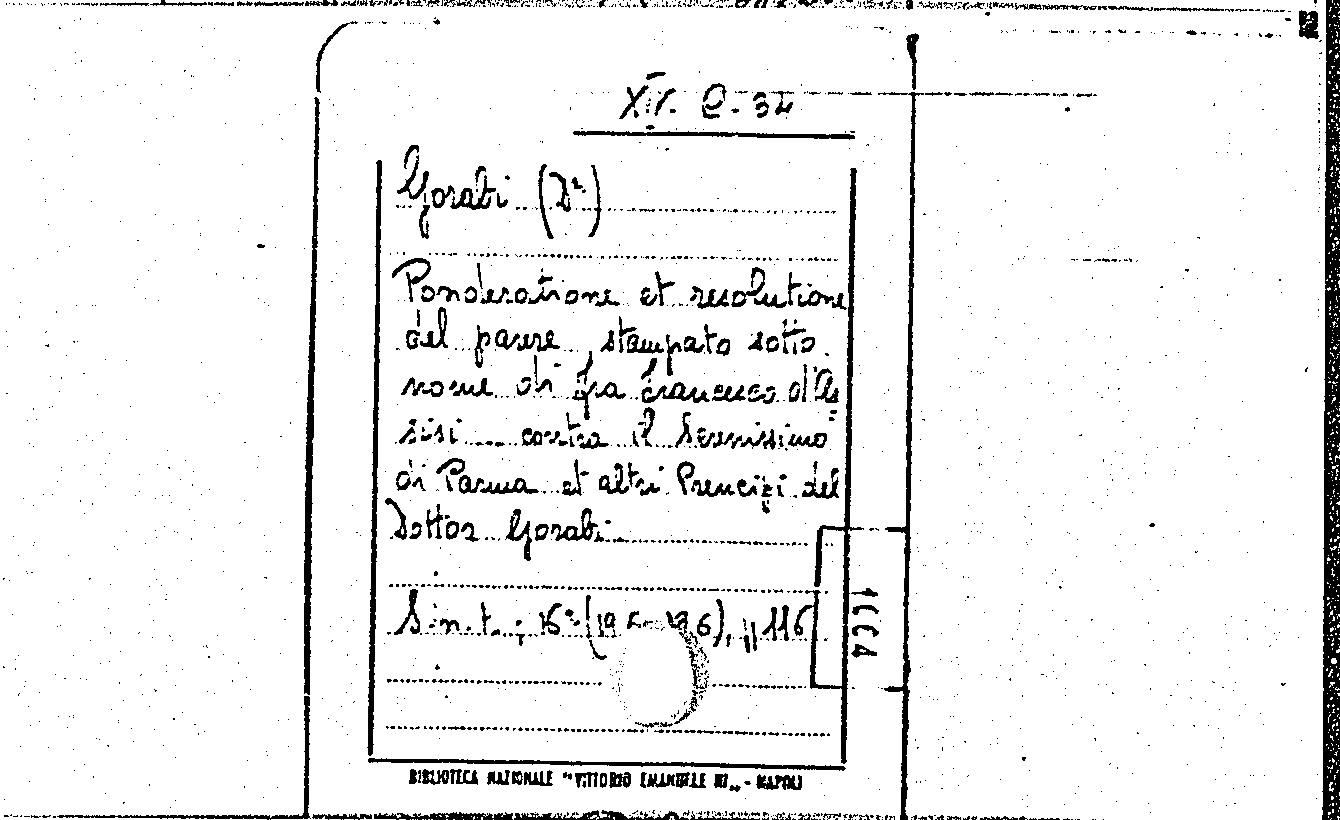 XIV. C. 34
Gorabi (Dr)
Ponderatione et resolutione
del parere stampato sotto
nome di fra Francesco d'As=
sisi ... contra il Serenissimo
di Parma et altri Prencipi del
Dottor Gorabi.
S. n. t.; 16° 116
1664
BIBLIOTECA NAZIONALE "VITTORIO EMANUELE III„ - NAPOLI